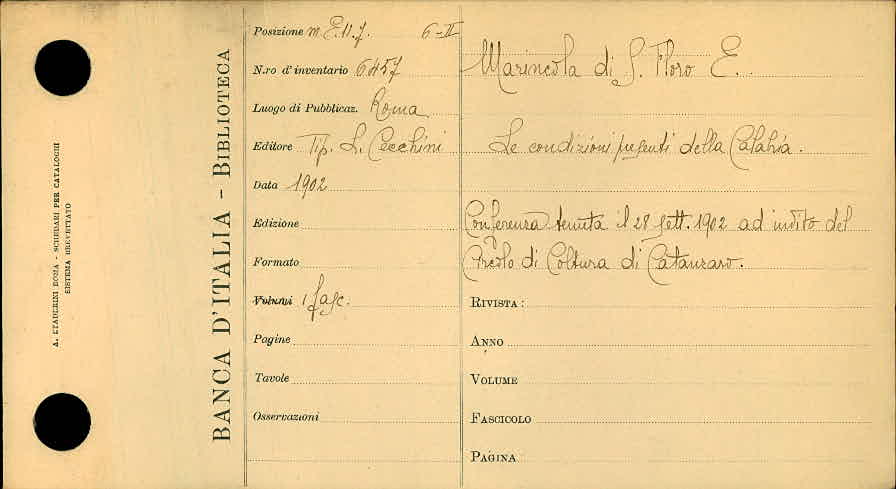 A. STADERINI ROMA - SCHEDARI PER CATALOGHI
SISTEMA BREVETTATO
BANCA D'ITALIA - BIBLIOTECA
Posizione m. E. 11. 7. 6-II
N.ro d'inventario 6457
Luogo di Pubblicaz. Roma
Editore Tip. L. Cecchini
Data 1902
Edizione
Formato
Volumi 1 fasc.
Pagine
Tavole
Osservazioni
Marincola di S. Floro E.
Le condizioni presenti della Calabria.
Conferenza tenuta il 28 sett. 1902 ad invito del
Circolo di Coltura di Catanzaro.
RIVISTA:
ANNO
VOLUME
FASCICOLO
PAGINA